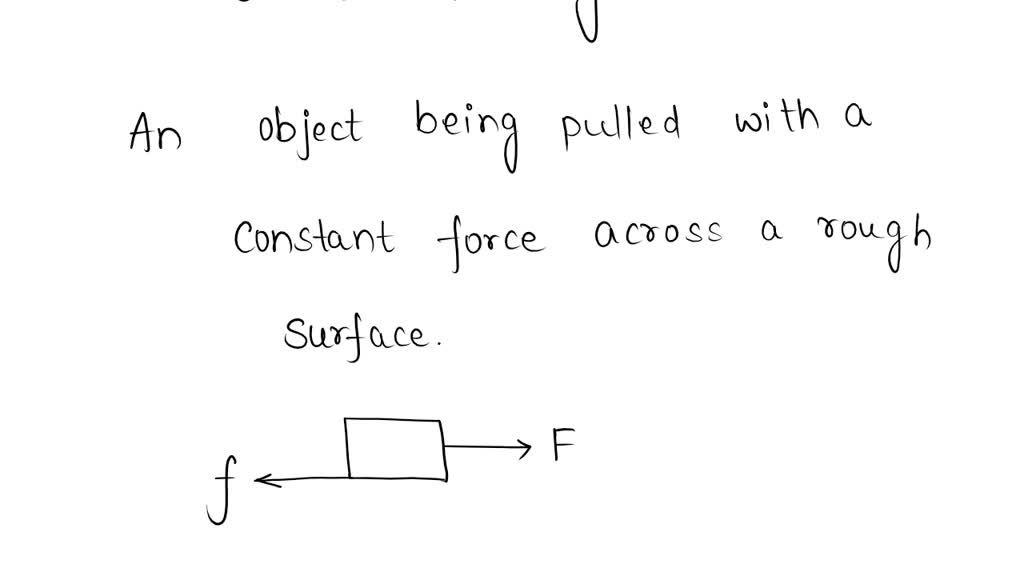 An object being pulled with a
constant force across a rough
surface.
F
f